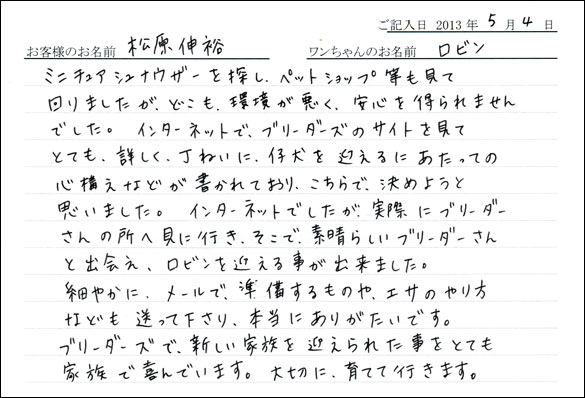 ご記入日 2013年 5月 4日
お客様のお名前 松原伸裕 ワンちゃんのお名前 ロビン
ミニチュアシュナウザーを探し、ペットショップ等も見て
回りましたが、どこも、環境が悪く、安心を得られません
でした。 インターネットで、ブリーダーズのサイトを見て
とても、詳しく、丁ねいに、仔犬を迎えるにあたっての
心構えなどが書かれており、こちらで、決めようと
思いました。 インターネットでしたが、実際にブリーダー
さんの所へ見に行き、そこで、素晴らしいブリーダーさん
と出会え、ロビンを迎える事が出来ました。
細やかに、メールで、準備するものや、エサのやり方
なども送って下さり、本当にありがたいです。
ブリーダーズで、新しい家族を迎えられた事をとても
家族で喜んでいます。大切に、育てて行きます。